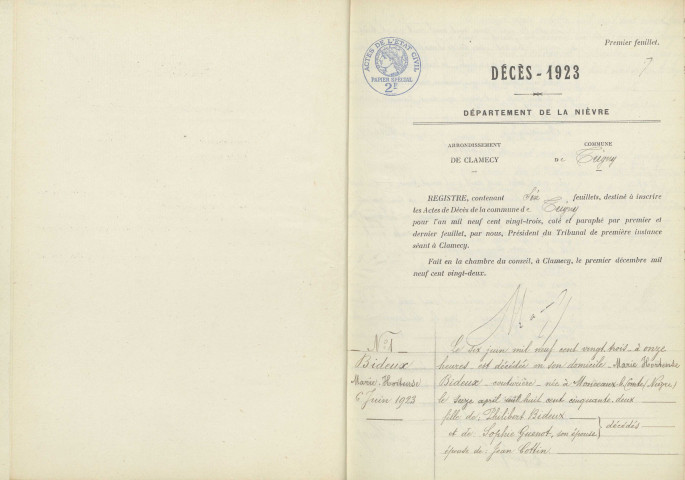 Premier feuillet.
7
ACTES DE L'ETAT CIVIL
PAPIER SPECIAL
2F
DÉCÈS - 1923
DÉPARTEMENT DE LA NIÈVRE
ARRONDISSEMENT
DE CLAMECY
COMMUNE
De Teigny
REGISTRE, contenant Six feuillets, destiné à inscrire
les Actes de Décès de la commune de Teigny
pour l'an mil neuf cent vingt-trois, coté et paraphé par premier et
dernier feuillet, par nous, Président du Tribunal de première instance
séant à Clamecy.
Fait en la chambre du conseil, à Clamecy, le premier décembre mil
neuf cent vingt-deux.
N° 1
Bideux
Marie Hortense
6 Juin 1923
Le six juin mil neuf cent vingt trois à onze
heures est décédée en son domicile Marie Hortense
Bideux couturière née à (Nièvre)
le seize avril mil huit cent cinquante deux
fille de Philibert Bideux
et de Sophie Guenot, son épouse décédés
épouse de Jean Cottin